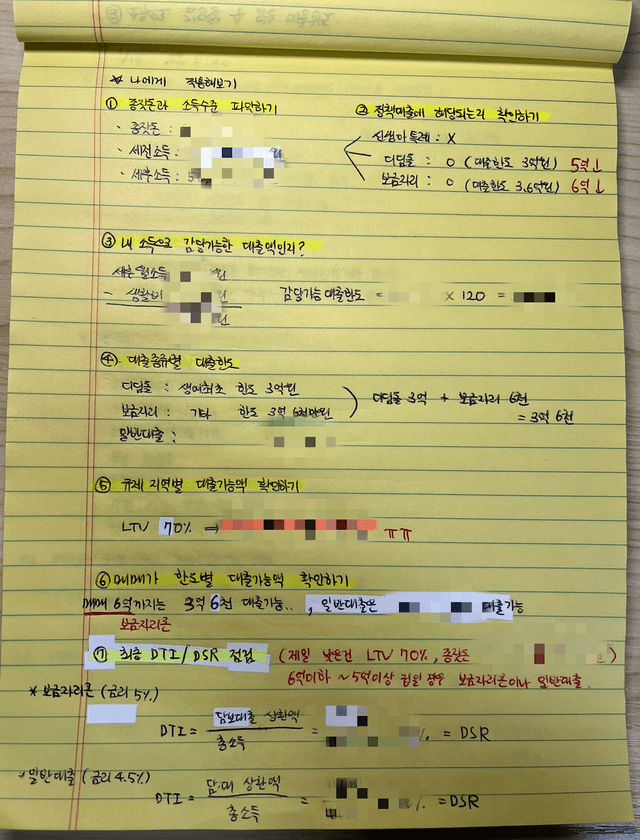 * 나에게 적용해보기
① 종잣돈과 소득수준 파악하기
· 종잣돈 :
· 세전소득 :
· 세후소득 : 5
② 정책대출에 해당되는지 확인하기
신생아 특례 : X
디딤돌 : O (대출한도 3억원) 5억↓
보금자리 : O (대출한도 3.6억원) 6억↓
③ 내 소득으로 감당가능한 대출액인지?
세후월소득 원
- 생활비 원
원
감당가능 대출한도 = × 120 =
④ 대출종류별 대출한도
디딤돌 : 생애최초 한도 3억원
보금자리 : 기타 한도 3억 6천만원
일반대출 :
디딤돌 3억 + 보금자리 6천
= 3억 6천
⑤ 규제 지역별 대출가능액 확인하기
LTV 70% ⇒ ㅠㅠ
⑥ 매매가 한도별 대출가능액 확인하기
매매 6억까지는 3억 6천 대출가능.. , 일반대출은 대출가능
보금자리론
⑦ 최종 DTI/DSR 점검 (제일 낮은건 LTV 70%, 종잣돈 )
6억이하 ~ 5억이상 집일 경우 보금자리론이나 일반대출.
* 보금자리론 (금리 5%)
DTI = 담보대출 상환액 / 총소득 = % = DSR
일반대출 (금리 4.5%)
DTI = 담대 상환액 / 총소득 = % = DSR